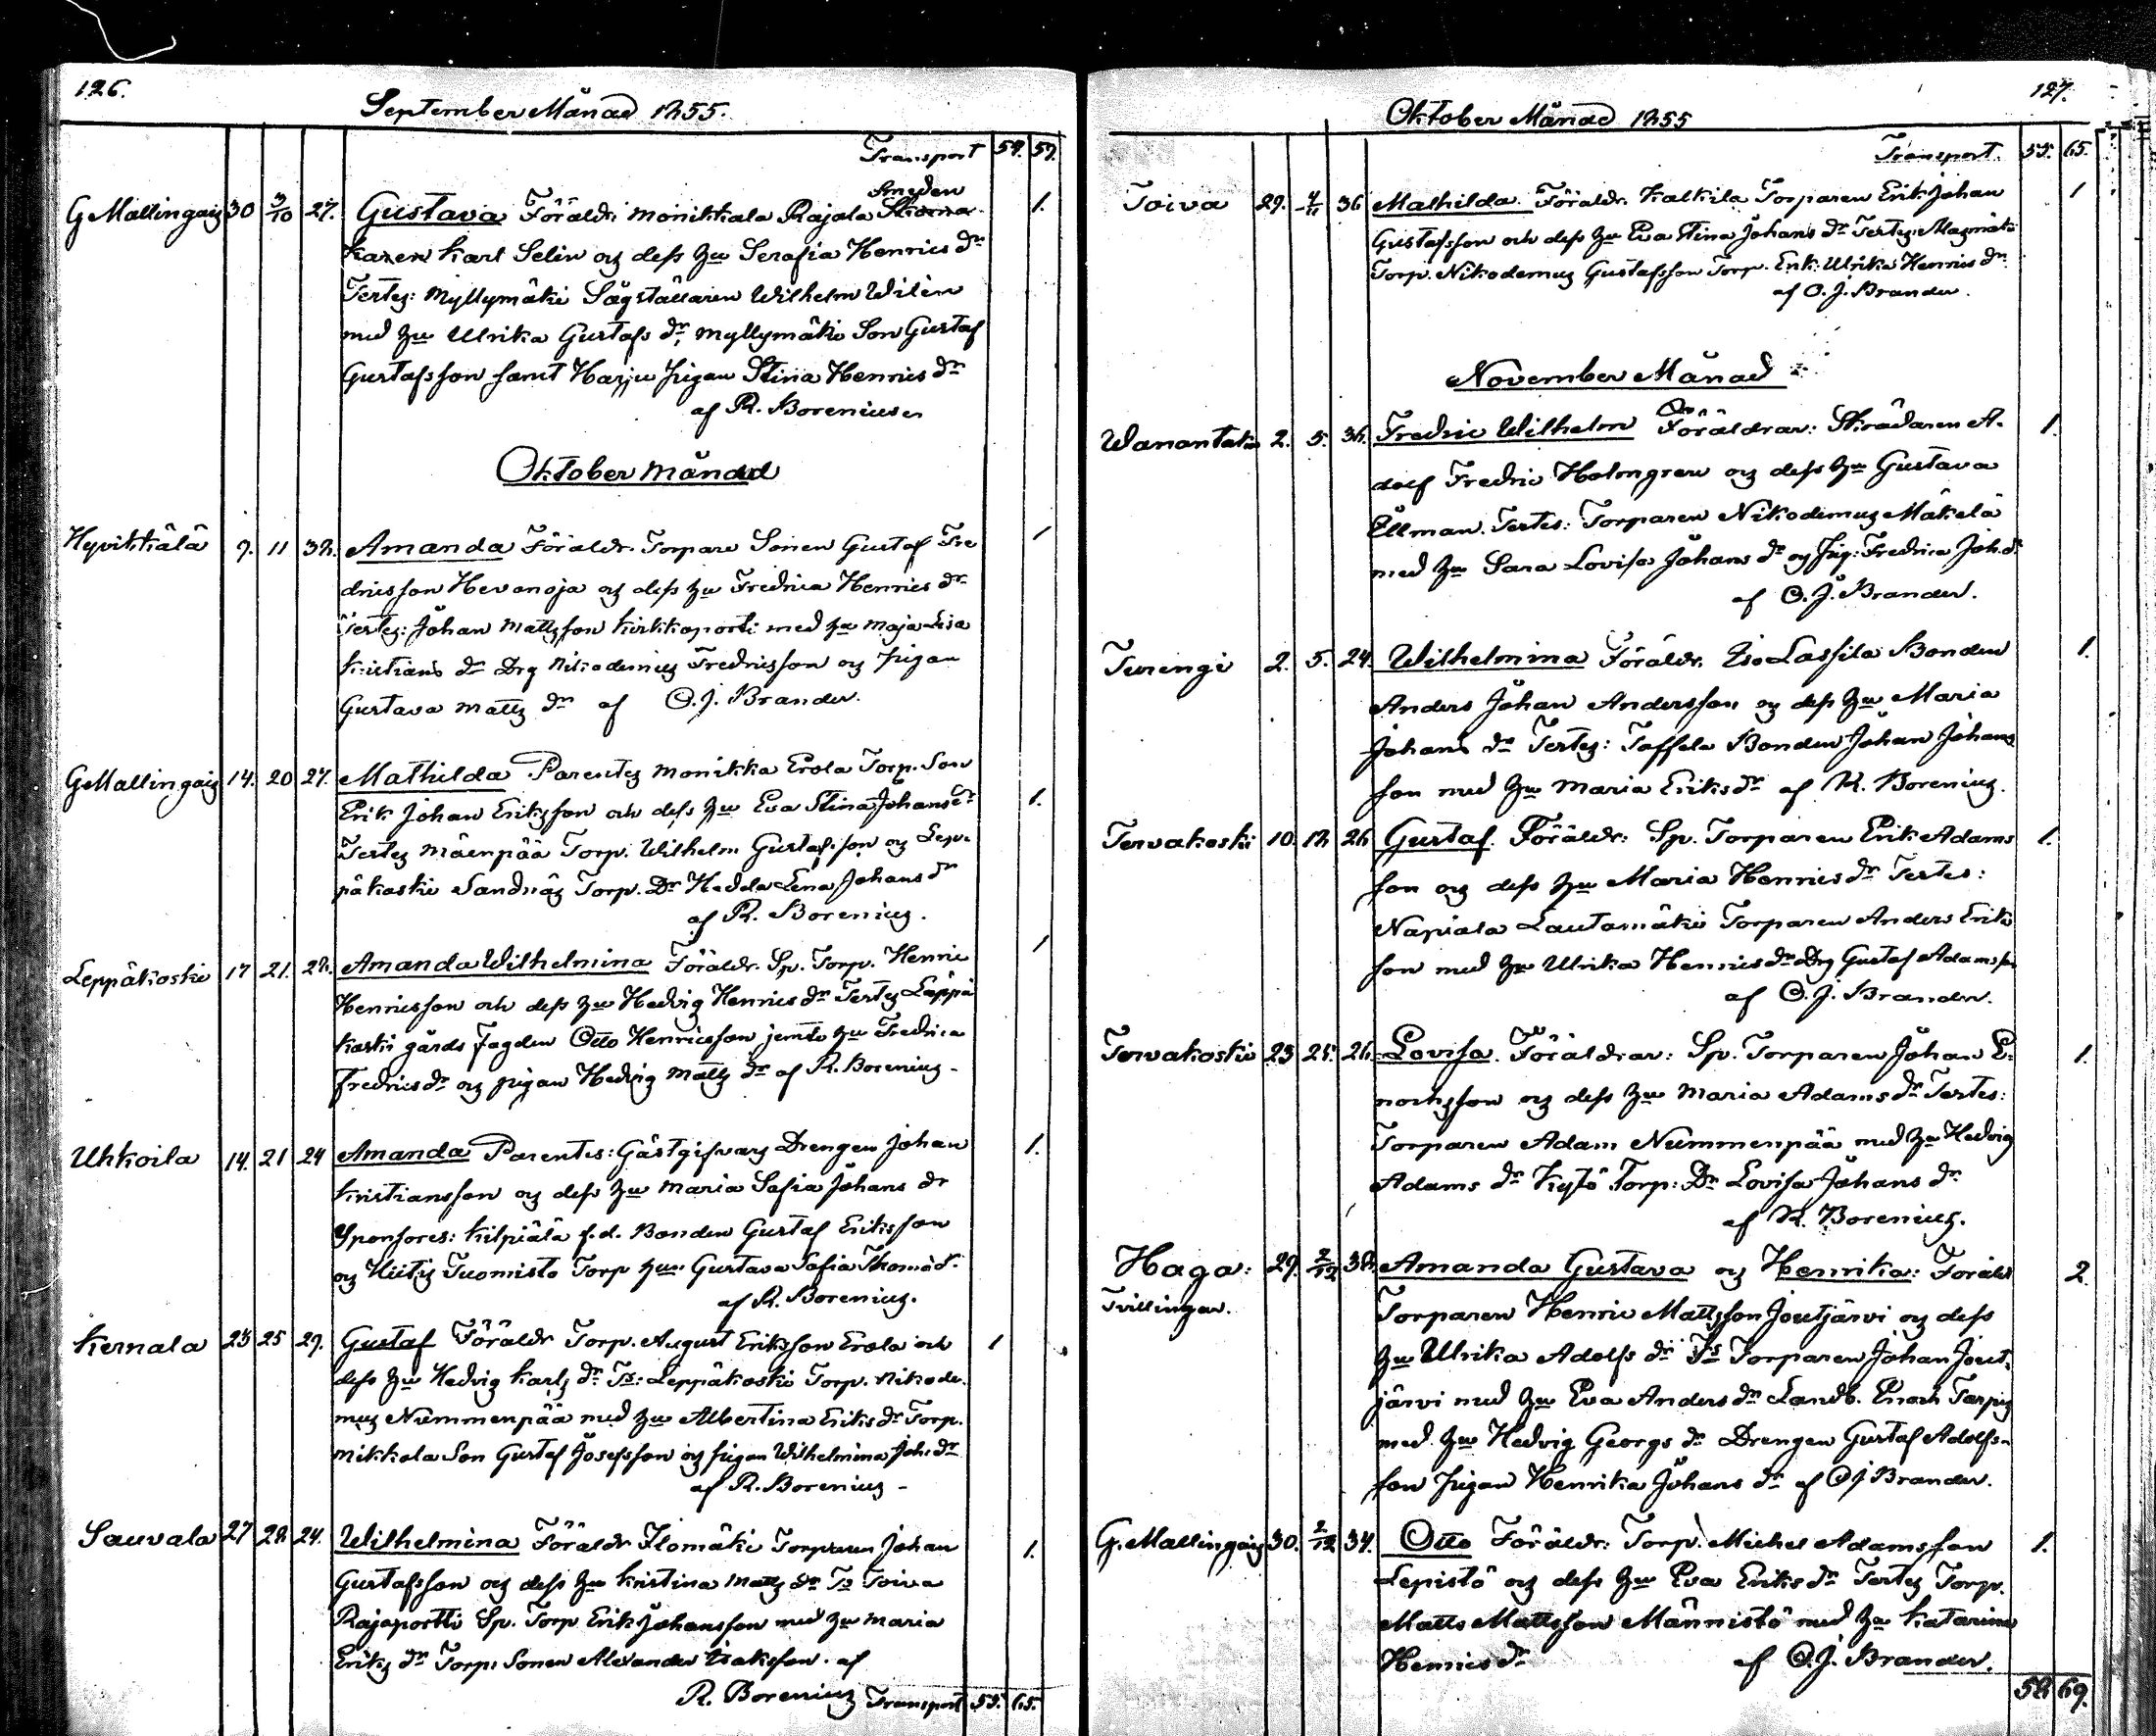 126.
September Månad 1855.
Transport 54. 59.
Smeden
G Mallingais 30 3/10 27. Gustava Föräldr. Monikkala Rajala
karen Karl Selin og dess hu Serafia Henrics dr 1.
Testes: Myllymäki Sågställaren Wilhelm Wilén
med hu Ulrika Gustafs dr, Myllymäki Son Gustaf
Gustafsson samt Harju pigan Stina Henrics dr
af R. Borenius
Oktober Månad
Hyvikkälä 9. 11 38. Amanda Föräldr. Torpare Sonen Gustaf Fre 1
dricsson Hevonoja og dess hu Fredrica Henrics dr
Testes: Johan Mattsson Kirkkoportti med hu Maja Lisa
Kristians dr Drg Nikodemus Fredricsson og pigan
Gustava Matts dr af O. J. Brander.
G Mallingais 14. 20 27. Mathilda Parentes Monikka Erola Torp. Son
Erik Johan Eriksson och dess hu Eva Stina Johans dr 1.
Testes Mäenpää Torp. Wilhelm Gustafsson og Lep-
päkoski Sandnäs Torp. Dr Hedda Lena Johans dr
af R. Borenius.
Leppäkoski 17 21. 28. Amanda Wilhelmina Föräldr. Sp. Torp. Henric 1
Henricsson och dess hu Hedvig Henrics dr Testes Leppä
koski gårds Fogden Otto Henricsson jemte hu Fredrica
Fredrics dr og pigan Hedvig Matts dr af R. Borenius
Uhkoila 14. 21 24 Amanda Parentes: Gästgifvars Drengen Johan 1.
Kristiansson og dess hu Maria Sofia Johans dr
Sponsores: Kilpiälä f.d. Bonden Gustaf Eriksson
og Tuomisto Torp hun Gustava Sofia Thomæ dr
af R. Borenius.
Kernala 23 25 29. Gustaf Föräldr Torp. August Eriksson Erola och 1
dess hu Hedvig Karls dr Ts: Leppäkoski Torp. Nikode-
mus Nummenpää med hu Albertina Eriks dr Torp.
Mikkola Son Gustaf Josefsson og pigan Wilhelmina Joh. dr
af R. Borenius
Sauvala 27 28 24. Wilhelmina Föräldr Ilomäki Torparen Johan 1.
Gustafsson og dess hu Kristina Matts dr Ts Toiva
Rajaportti Sp. Torp Erik Johansson med hu Maria
Eriks dr Torp. Sonen Alexander Isaksson. af
R. Borenius Transport 55. 65.
127.
Oktober Månad 1855
Transport. 55. 65.
Toiva 29. 4/11 36 Mathilda. Föräldr. Kalkila Torparen Erik Johan 1
Gustafsson och dess hu Eva Stina Johans dr Testes
Torp. Nikodemus Gustafsson Torp. Enk. Ulrika Henrics dr.
af O. J. Brander.
November Månad
Wanantaka 2. 5. 36. Fredric Wilhelm Föräldrar: Skrädaren A- 1.
dolf Fredric Holmgren og dess hu Gustava
Ellman. Testes: Torparen Nikodemus Mäkelä
med hu Sara Lovisa Johans dr og Pig: Fredrica Joh. dr
af O. J. Brander.
Turengi 2. 5. 24. Wilhelmina Föräldr. Iso Lassila Bonden 1.
Anders Johan Andersson og dess hu Maria
Johans dr Testes: Toffola Bonden Johan Johans
son med hu Maria Eriks dr af R. Borenius.
Tervakoski 10. 18 26 Gustaf. Föräldr: Sp. Torparen Erik Adams 1.
son og dess hu Maria Henrics dr Testes:
Napiala Lautamäki Torparen Anders Eriks
son med hu Ulrika Henrics dr Drg Gustaf Adamsson
af O. J. Brander.
Tervakoski 23 25. 26. Lovisa. Föräldrar: Sp. Torparen Johan E- 1.
nochsson og dess hu Maria Adams dr Testes:
Torparen Adam Nummenpää med hu Hedvig
Adams dr Kytö Torp: Dr Lovisa Johans dr
af R. Borenius.
Haga: 29. 2/12 38. Amanda Gustava og Henrika: Föräldr 2.
Tvillingar.
Torparen Henric Mattsson Joutjärvi og dess
hu Ulrika Adolfs dr Ts Torparen Johan Jout-
järvi med hu Eva Anders dr Landb. Enoch Torpis
med hu Hedvig Georgs dr Drengen Gustaf Adolfs-
son pigan Henrika Johans dr af O J Brander.
G. Mallingais 30. 2/12 34. Otto Föräldr: Torp. Michel Adamsson 1.
Lepistö og dess hu Eva Eriks dr Testes Torp.
Matts Mattsson Männistö med hu Katarina
Henrics dr af O. J. Brander.
58 69.